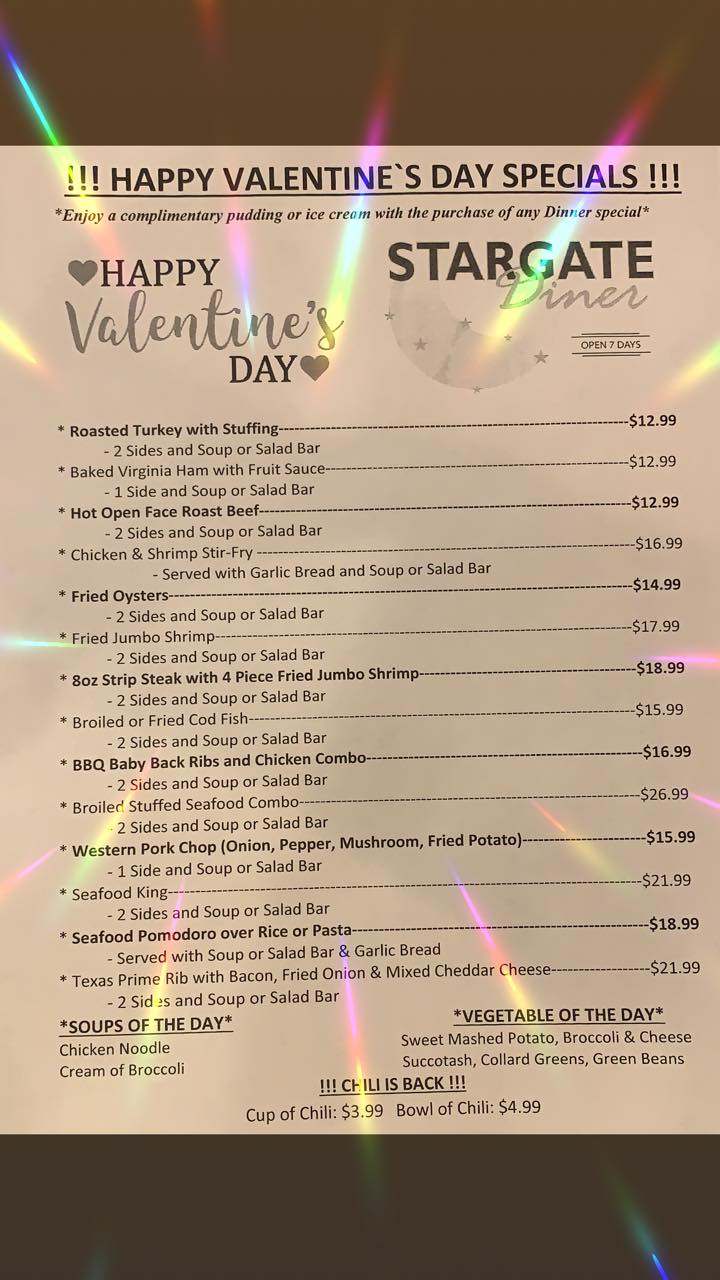 !!! HAPPY VALENTINE`S DAY SPECIALS !!!
*Enjoy a complimentary pudding or ice cream with the purchase of any Dinner special*
HAPPY
Valentine's
DAY
STARGATE
Diner
OPEN 7 DAYS
* Roasted Turkey with Stuffing--------------------------------------------------$12.99
- 2 Sides and Soup or Salad Bar
* Baked Virginia Ham with Fruit Sauce-------------------------------------------$12.99
- 1 Side and Soup or Salad Bar
* Hot Open Face Roast Beef------------------------------------------------------$12.99
- 2 Sides and Soup or Salad Bar
* Chicken & Shrimp Stir-Fry ----------------------------------------------------$16.99
- Served with Garlic Bread and Soup or Salad Bar
* Fried Oysters-----------------------------------------------------------------$14.99
- 2 Sides and Soup or Salad Bar
* Fried Jumbo Shrimp------------------------------------------------------------$17.99
- 2 Sides and Soup or Salad Bar
* 8oz Strip Steak with 4 Piece Fried Jumbo Shrimp-------------------------------$18.99
- 2 Sides and Soup or Salad Bar
* Broiled or Fried Cod Fish-----------------------------------------------------$15.99
- 2 Sides and Soup or Salad Bar
* BBQ Baby Back Ribs and Chicken Combo------------------------------------------$16.99
- 2 Sides and Soup or Salad Bar
* Broiled Stuffed Seafood Combo-------------------------------------------------$26.99
- 2 Sides and Soup or Salad Bar
* Western Pork Chop (Onion, Pepper, Mushroom, Fried Potato)---------------------$15.99
- 1 Side and Soup or Salad Bar
* Seafood King------------------------------------------------------------------$21.99
- 2 Sides and Soup or Salad Bar
* Seafood Pomodoro over Rice or Pasta-------------------------------------------$18.99
- Served with Soup or Salad Bar & Garlic Bread
* Texas Prime Rib with Bacon, Fried Onion & Mixed Cheddar Cheese----------------$21.99
- 2 Sides and Soup or Salad Bar
*SOUPS OF THE DAY*
Chicken Noodle
Cream of Broccoli
*VEGETABLE OF THE DAY*
Sweet Mashed Potato, Broccoli & Cheese
Succotash, Collard Greens, Green Beans
!!! CHILI IS BACK !!!
Cup of Chili: $3.99 Bowl of Chili: $4.99